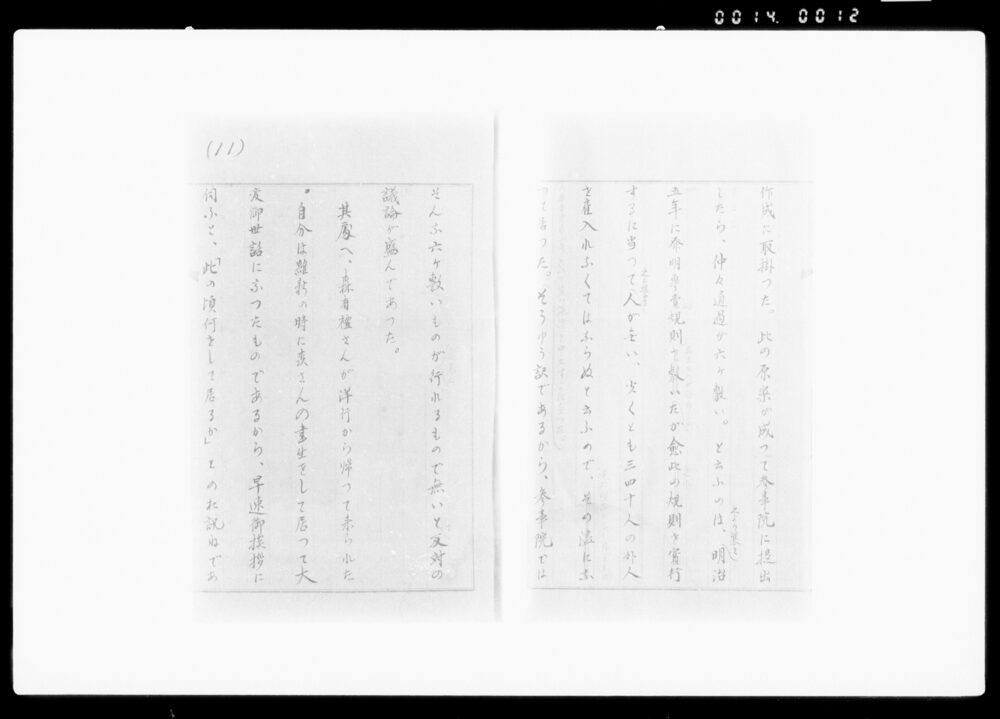 0014. 0012
作成に取掛つた。此の原案が成つて参事院に提出
したら、仲々通過が六ヶ敷い。と云ふのは、明治
五年に発明専売規則を敷いたが愈此の規則を実行
するに当つて人が無い、少くとも三四十人の外人
を雇入れなくてはならぬと云ふので、其の儘にな
つて居つた。そうゆう訳であるから、参事院では
(11)
そんな六ヶ敷いものが行れるもので無いと反対の
議論が盛んであつた。
其処へ、森有禮さんが洋行から帰つて来られた
。自分は維新の時に森さんの書生をして居つて大
変御世話になつたものであるから、早速御挨拶に
伺ふと、「此の頃何をして居るか」とのお訊ねであ